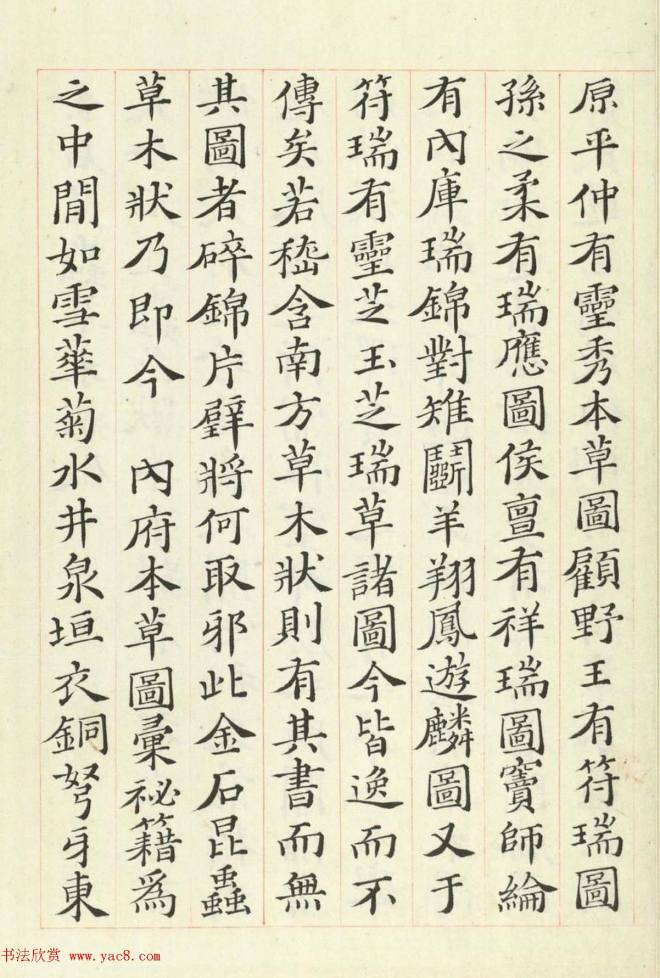 原平仲有靈秀本草圖顧野王有符瑞圖
孫之柔有瑞應圖侯亶有祥瑞圖竇師綸
有內庫瑞錦對雉鬭羊翔鳳遊麟圖又于
符瑞有靈芝玉芝瑞草諸圖今皆逸而不
傳矣若嵇含南方草木狀則有其書而無
其圖者碎錦片璧將何取邪此金石昆蟲
草木狀乃即今 內府本草圖彙祕籍爲
之中間如雪華菊水井泉垣衣銅弩牙東
书法欣赏 www.yac8.com